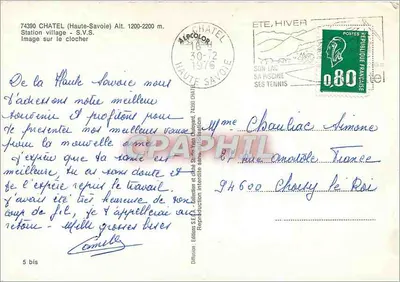 74390 CHATEL (Haute-Savoie) Alt. 1200-2200 m.
Station village - S.V.S.
Image sur le clocher
CHATEL
HAUTE SAVOIE
ETE, HIVER
SON LAC
SA PISCINE
SES TENNIS
POSTES
0,80
De la Haute Savoie nous
t'adressons notre meilleur
souvenir et profitons pour
te presenter nos meilleurs vœux
pour la nouvelle année
J'espère que ta santé est
meilleure, tu as sans doute et
je l'espère repris le travail.
J'avais été très heureuse de ton
coup de fil, je t'appellerai au
retour - Mille grosses bises
Mme Chauliac Simone
rue Anatole France
94600 Choisy le Roi
Reproduction interdite
CPAPHIL
5 bis